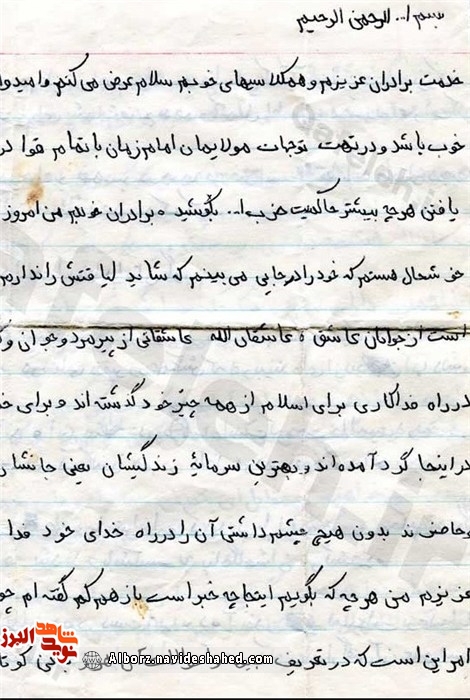 بسم ا... الرحمن الرحیم
خدمت برادران عزیزم و همکلاسیهای خوبم سلام عرض می کنم و امیدوا
خوب باشد و در تحت توجهات مولایمان امام زمان با تمام قوا در
یافتن هر چه بیشتر حاکمیت حزب ا... بکوشید ه برادران خوبم من امروز
خوشحال هستم که خود را در جایی می بینم که شاید لیاقتش را ندارم
است از جوانان عاشق ه عاشقان الله عاشقانی از پیرمرد و جوان و
در راه فداکاری برای اسلام از همه چیز خود گذشته اند و برای
در اینجا گرد آمده اند و بهترین سرمایهٔ زندگیشان یعنی جانشان
وحاضرند بدون هیچ چشم داشتی آن را در راه خدای خود فدا
عزیزم من هر چه که بگویم اینجا چه خبر است باز هم کم گفته ام چو
امر این است که در تعریف
شاهد
نوید
البرز
Alborz.navideshahed.com